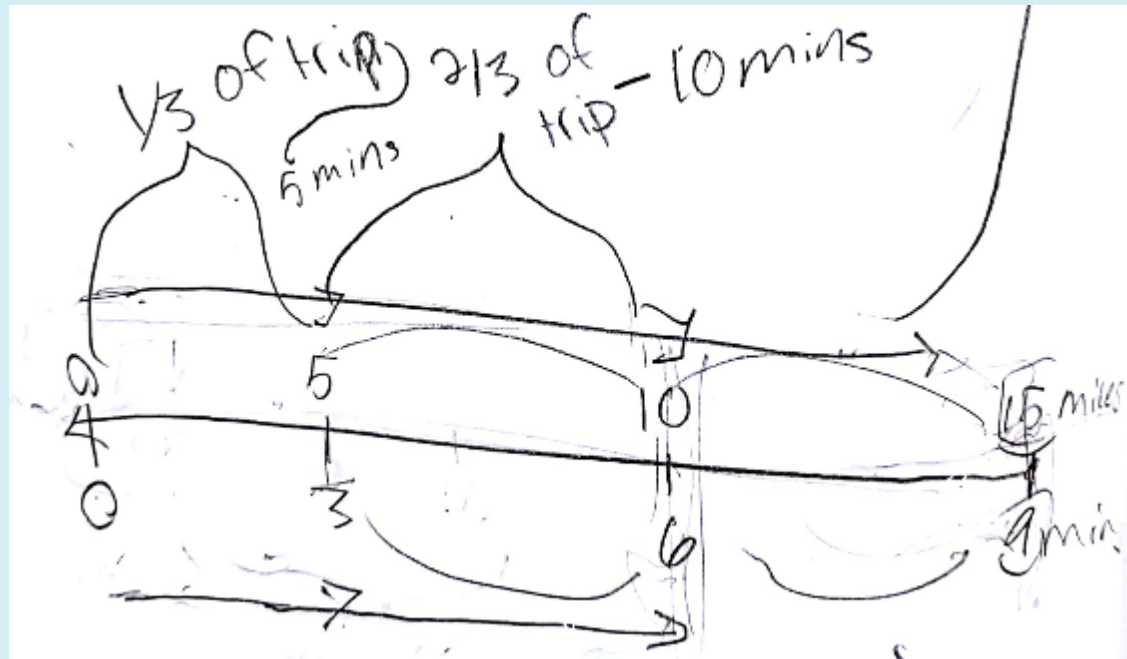 1/3 of trip 2/3 of trip - 10 mins
5 mins
0 5 10 15 miles
0 3 6 9 min